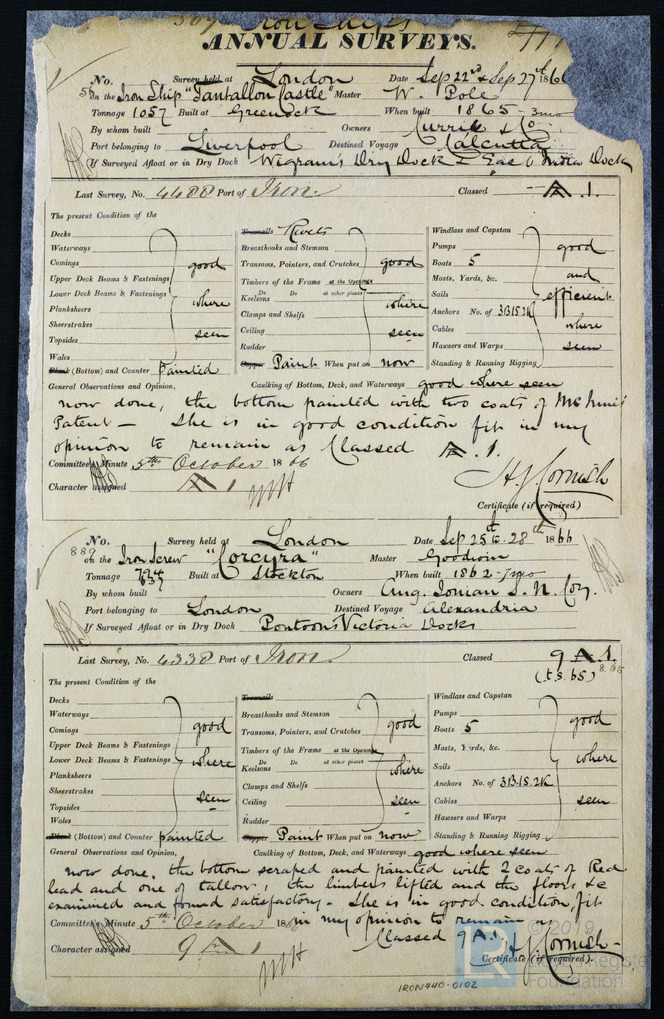 Iron Ships
ANNUAL SURVEYS.
No. Survey held at London Date Sep 22nd & Sep 27th 186
56 on the Iron Ship "Tantallon Castle" Master W. Pole
Tonnage 1057 Built at Greenock When built 1865 - 3mo
By whom built Owners Currie & Co.
Port belonging to Liverpool Destined Voyage Calcutta
If Surveyed Afloat or in Dry Dock Wigram's Dry Dock & East India Dock
Last Survey, No. 4488 Port of Iron. Classed A.1.
The present Condition of the
Decks
Waterways
Comings
Upper Deck Beams & Fastenings
Lower Deck Beams & Fastenings
Planksheers
Sheerstrakes
Topsides
Wales
good
where
seen
(Bottom) and Counter painted
Treenails Rivets
Breasthooks and Stemson
Transoms, Pointers, and Crutches
Timbers of the Frame at the Openings
Do Do at other places
Keelsons
Clamps and Shelfs
Ceiling
Rudder
good
where
seen
Copper Paint When put on now
Windlass and Capstan
Pumps
Boats 5
Masts, Yards, &c.
Sails
Anchors No. of 3B.1S.2K
Cables
Hawsers and Warps
Standing & Running Rigging
good
and
efficient
where
seen
General Observations and Opinion, Caulking of Bottom, Deck, and Waterways good where seen
now done, the bottom painted with two coats of
Patent — She is in good condition fit in my
opinion to remain as Classed A.1.
Committee's Minute 5th October 1866
Character assigned A 1
H.J. Cornish
Certificate (if required)
No. Survey held at London Date Sep 25th to 28th 1866
889 on the Iron Screw "Corcyra" Master Goodwin
Tonnage Built at Stockton When built 1862 - 7mo
By whom built Owners Ang. Ionian S. N. Coy.
Port belonging to London Destined Voyage Alexandria
If Surveyed Afloat or in Dry Dock Pontoons Victoria Docks
Last Survey, No. 4338 Port of Iron. Classed 9 A.1.
(t.s. 65) 8.65
The present Condition of the
Decks
Waterways
Comings
Upper Deck Beams & Fastenings
Lower Deck Beams & Fastenings
Planksheers
Sheerstrakes
Topsides
Wales
good
where
seen
(Bottom) and Counter painted
Treenails
Breasthooks and Stemson
Transoms, Pointers, and Crutches
Timbers of the Frame at the Openings
Do Do at other places
Keelsons
Clamps and Shelfs
Ceiling
Rudder
good
where
seen
Copper Paint When put on now
Windlass and Capstan
Pumps
Boats 5
Masts, Yards, &c.
Sails
Anchors No. of 3B.1S.2K
Cables
Hawsers and Warps
Standing & Running Rigging
good
where
seen
General Observations and Opinion, Caulking of Bottom, Deck, and Waterways good where seen
now done, the bottom scraped and painted with 2 coats of Red
lead and one of tallow, the limbers lifted and the floors &c
examined and found satisfactory. She is in good condition, fit
in my opinion to remain as
Classed 9 A.1.
Committee's Minute 5th October 186
Character assigned 9 A 1
H.J. Cornish
Certificate (if required).
IRON440-0102
© 2019
LR
Lloyd's Register
Foundation